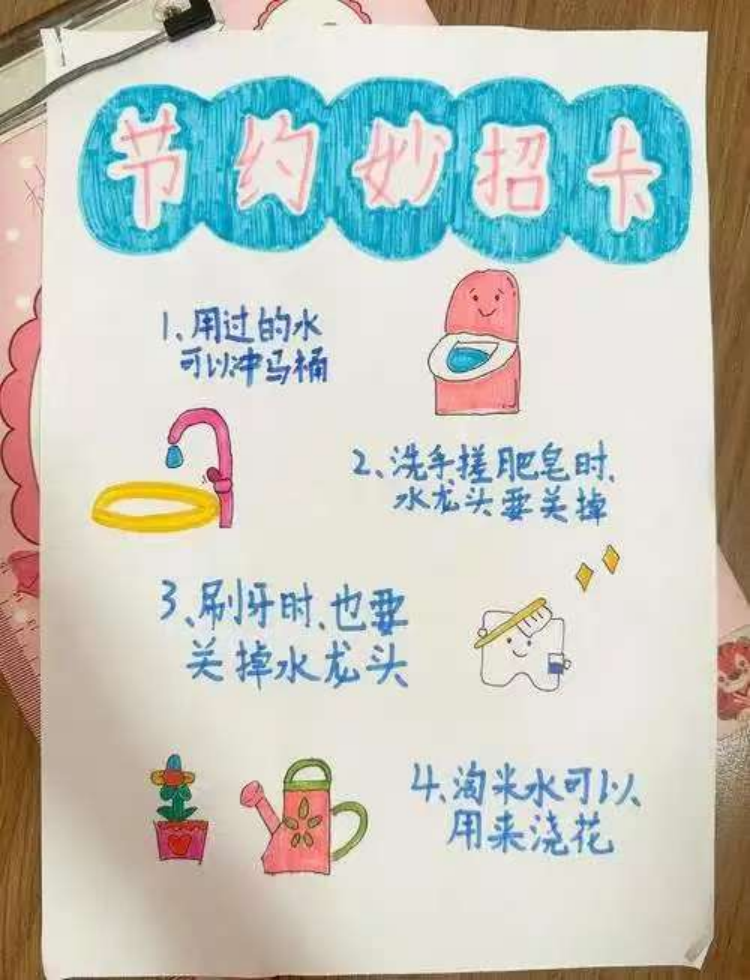 节约妙招卡
1、用过的水
可以冲马桶
2、洗手搓肥皂时,
水龙头要关掉
3、刷牙时、也要
关掉水龙头
4、淘米水可以
用来浇花